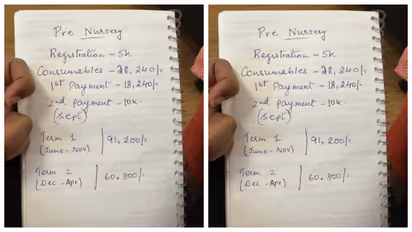 Pre Nursery
Registration - 5k
Consumables - 28,240/-
1st Payment - 18,240/-
2nd Payment - 10k
(Sept)
Term 1 | 91,200/-
(June - Nov)
Term 2 | 60,800/-
(Dec - Apr)
Pre Nursery
Registration - 5k
Consumables - 28,240/-
1st Payment - 18,240/-
2nd Payment - 10k
(Sept)
Term 1 | 91,200/-
(June - Nov)
Term 2 | 60,800/-
(Dec - Apr)